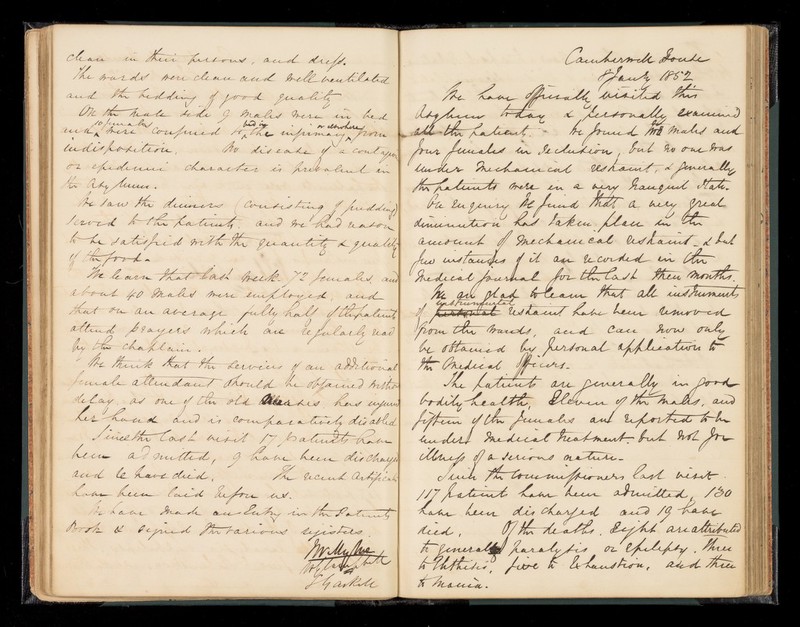 clean in their persons, and dress.
The wards were clean and well ventilated
and the bedding of good quality
On the male side 9 males were in bed
and 10 females were confined to bed in the infirmary or elsewhere from
indisposition. No disease of a contagious
or epidemic character is prevalent in
the Asylum.
We saw the dinners (consisting of pudding)
served to the patients and we had reason
to be satisfied with the quantity & quality
of the food.
We learn that last week 72 females, and
about 40 males were employed, and
that on an average fully half of the patients
attend prayers which are regularly read
by the chaplain.
We think that the services of an additional
female attendant should be obtained without
delay as one of the old Nurses has injured
her hand and is comparatively disabled
Since the last visit 17 patients have
been admitted, 9 have been discharged
and 6 have died. The recent certificates
have been laid before us.
We have made an Entry in the Patients
Book & signed the various registers.
W G Campbell
S Gaskell
Camberwell House
8 Jany 1852
We have officially visited this
Asylum today & personally examined
all the patients - We found two males and
four females in seclusion, but no one was
under mechanical restraint, & generally
the patients were in a very tranquil state.
On enquiry we find that a very great
diminution has taken place in the
amount of mechanical restraint & but
few instances of it are recorded in the
Medical Journal for the last three months.
We are glad to learn that all instruments
of restraint have been removed
from the wards, and can now only
be obtained by personal application to
the Medical Officers.
The patients are generally in good
bodily health, Eleven of the males, and
fifteen of the females are reported to be
under medical treatment but not for
illness of a serious nature -
Since the Commissioners last visit
117 patients have been admitted, 130
have been discharged and 19 have
died. Of the deaths, Eight are attributed
to general paralysis or epilepsy. Three
to Phthisis, five to Exhaustion, and three
to Mania.